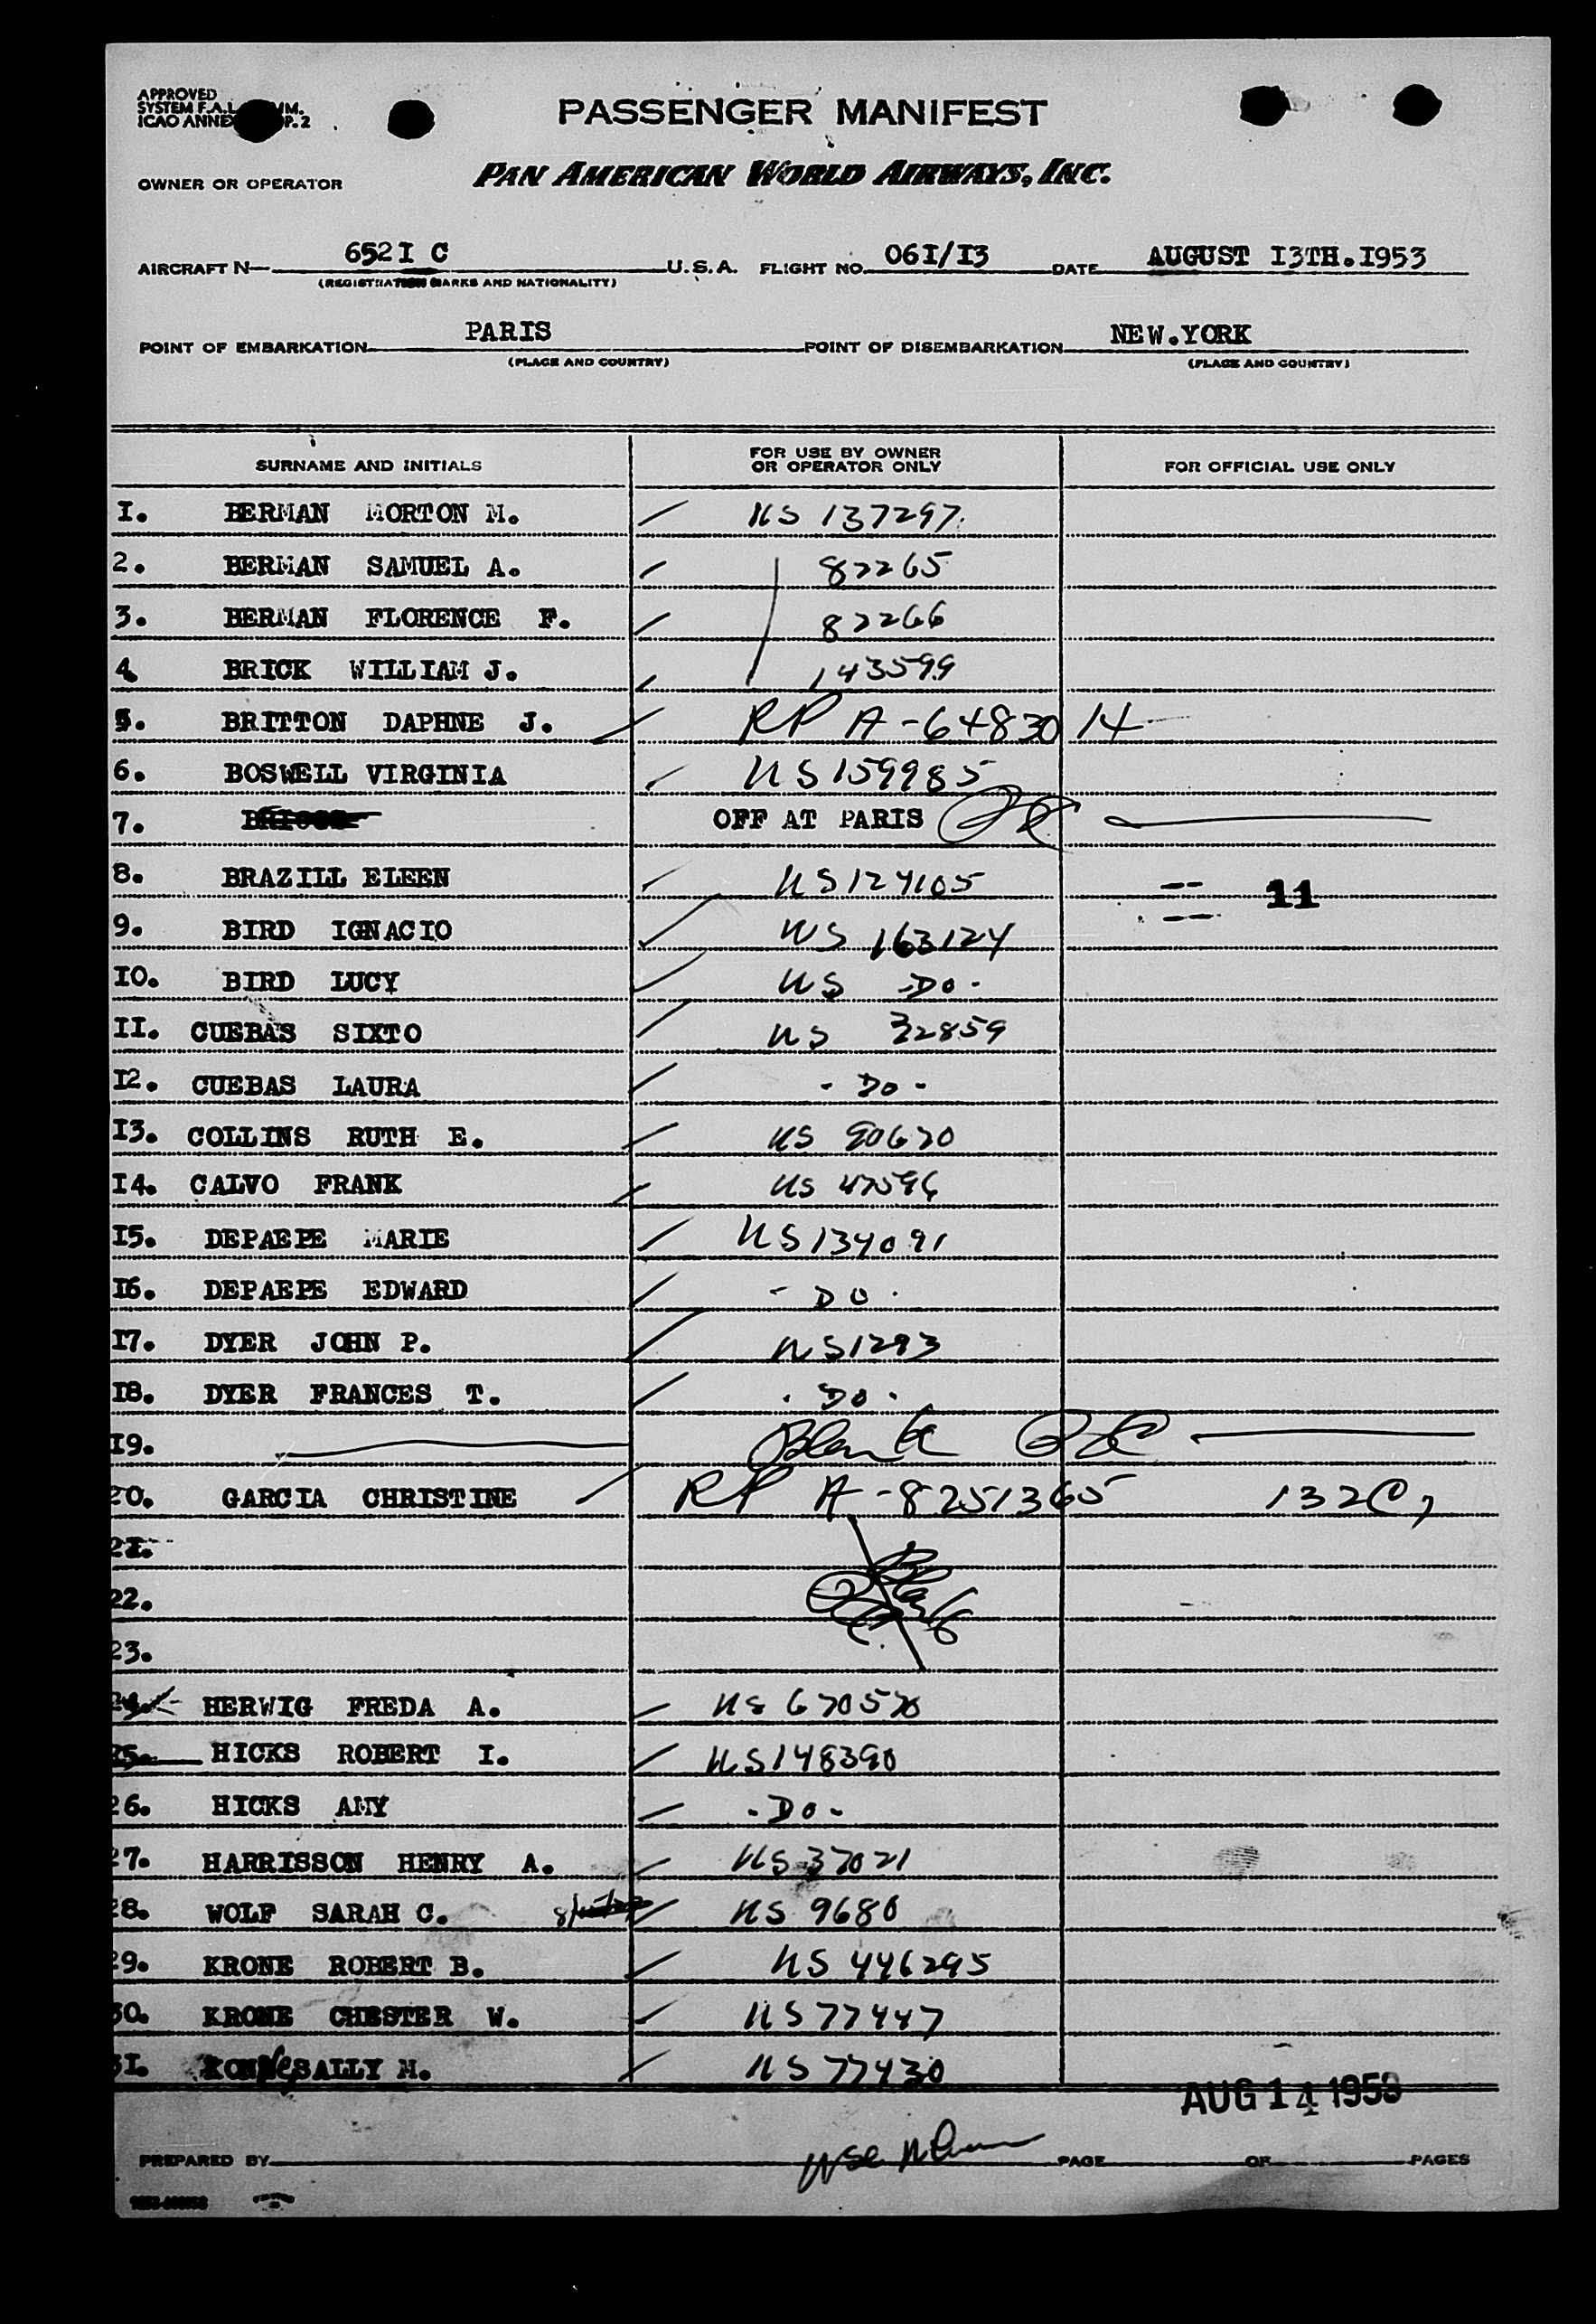 APPROVED
SYSTEM F.A.L. MM.
ICAO ANNEX P. 2
PASSENGER MANIFEST
OWNER OR OPERATOR PAN AMERICAN WORLD AIRWAYS, INC.
AIRCRAFT N— 652I C U.S.A. FLIGHT NO. 06I/I3 DATE AUGUST I3TH.I953
(REGISTRATION MARKS AND NATIONALITY)
POINT OF EMBARKATION PARIS POINT OF DISEMBARKATION NEW.YORK
(PLACE AND COUNTRY) (PLACE AND COUNTRY)
SURNAME AND INITIALS FOR USE BY OWNER OR OPERATOR ONLY FOR OFFICIAL USE ONLY
I. BERMAN MORTON M. US 137297
2. BERMAN SAMUEL A. 82265
3. BERMAN FLORENCE F. 82266
4 BRICK WILLIAM J. 143599
5. BRITTON DAPHNE J. RP A-6483014
6. BOSWELL VIRGINIA US 159985
7. OFF AT PARIS
8. BRAZILL ELEEN US 124105
11
9. BIRD IGNACIO US 163124
IO. BIRD LUCY US -DO-
II. CUEBAS SIXTO US 32859
I2. CUEBAS LAURA - DO -
I3. COLLINS RUTH E. US 90670
I4. CALVO FRANK US 47596
I5. DEPAEPE MARIE US 134091
I6. DEPAEPE EDWARD - DO -
I7. DYER JOHN P. US 1293
I8. DYER FRANCES T. - DO -
I9. Blank
20. GARCIA CHRISTINE RP A-8251365 132C
2I.
22. Blank
23.
24 HERWIG FREDA A. US 670570
25. HICKS ROBERT I. US 148390
26. HICKS AMY - DO -
27. HARRISSON HENRY A. US 37021
28. WOLF SARAH C. US 9680
29. KRONE ROBERT B. US 446295
30. KRONE CHESTER W. US 77447
3I. SALLY M. US 77430
AUG 14 1953
PREPARED BY PAGE OF PAGES